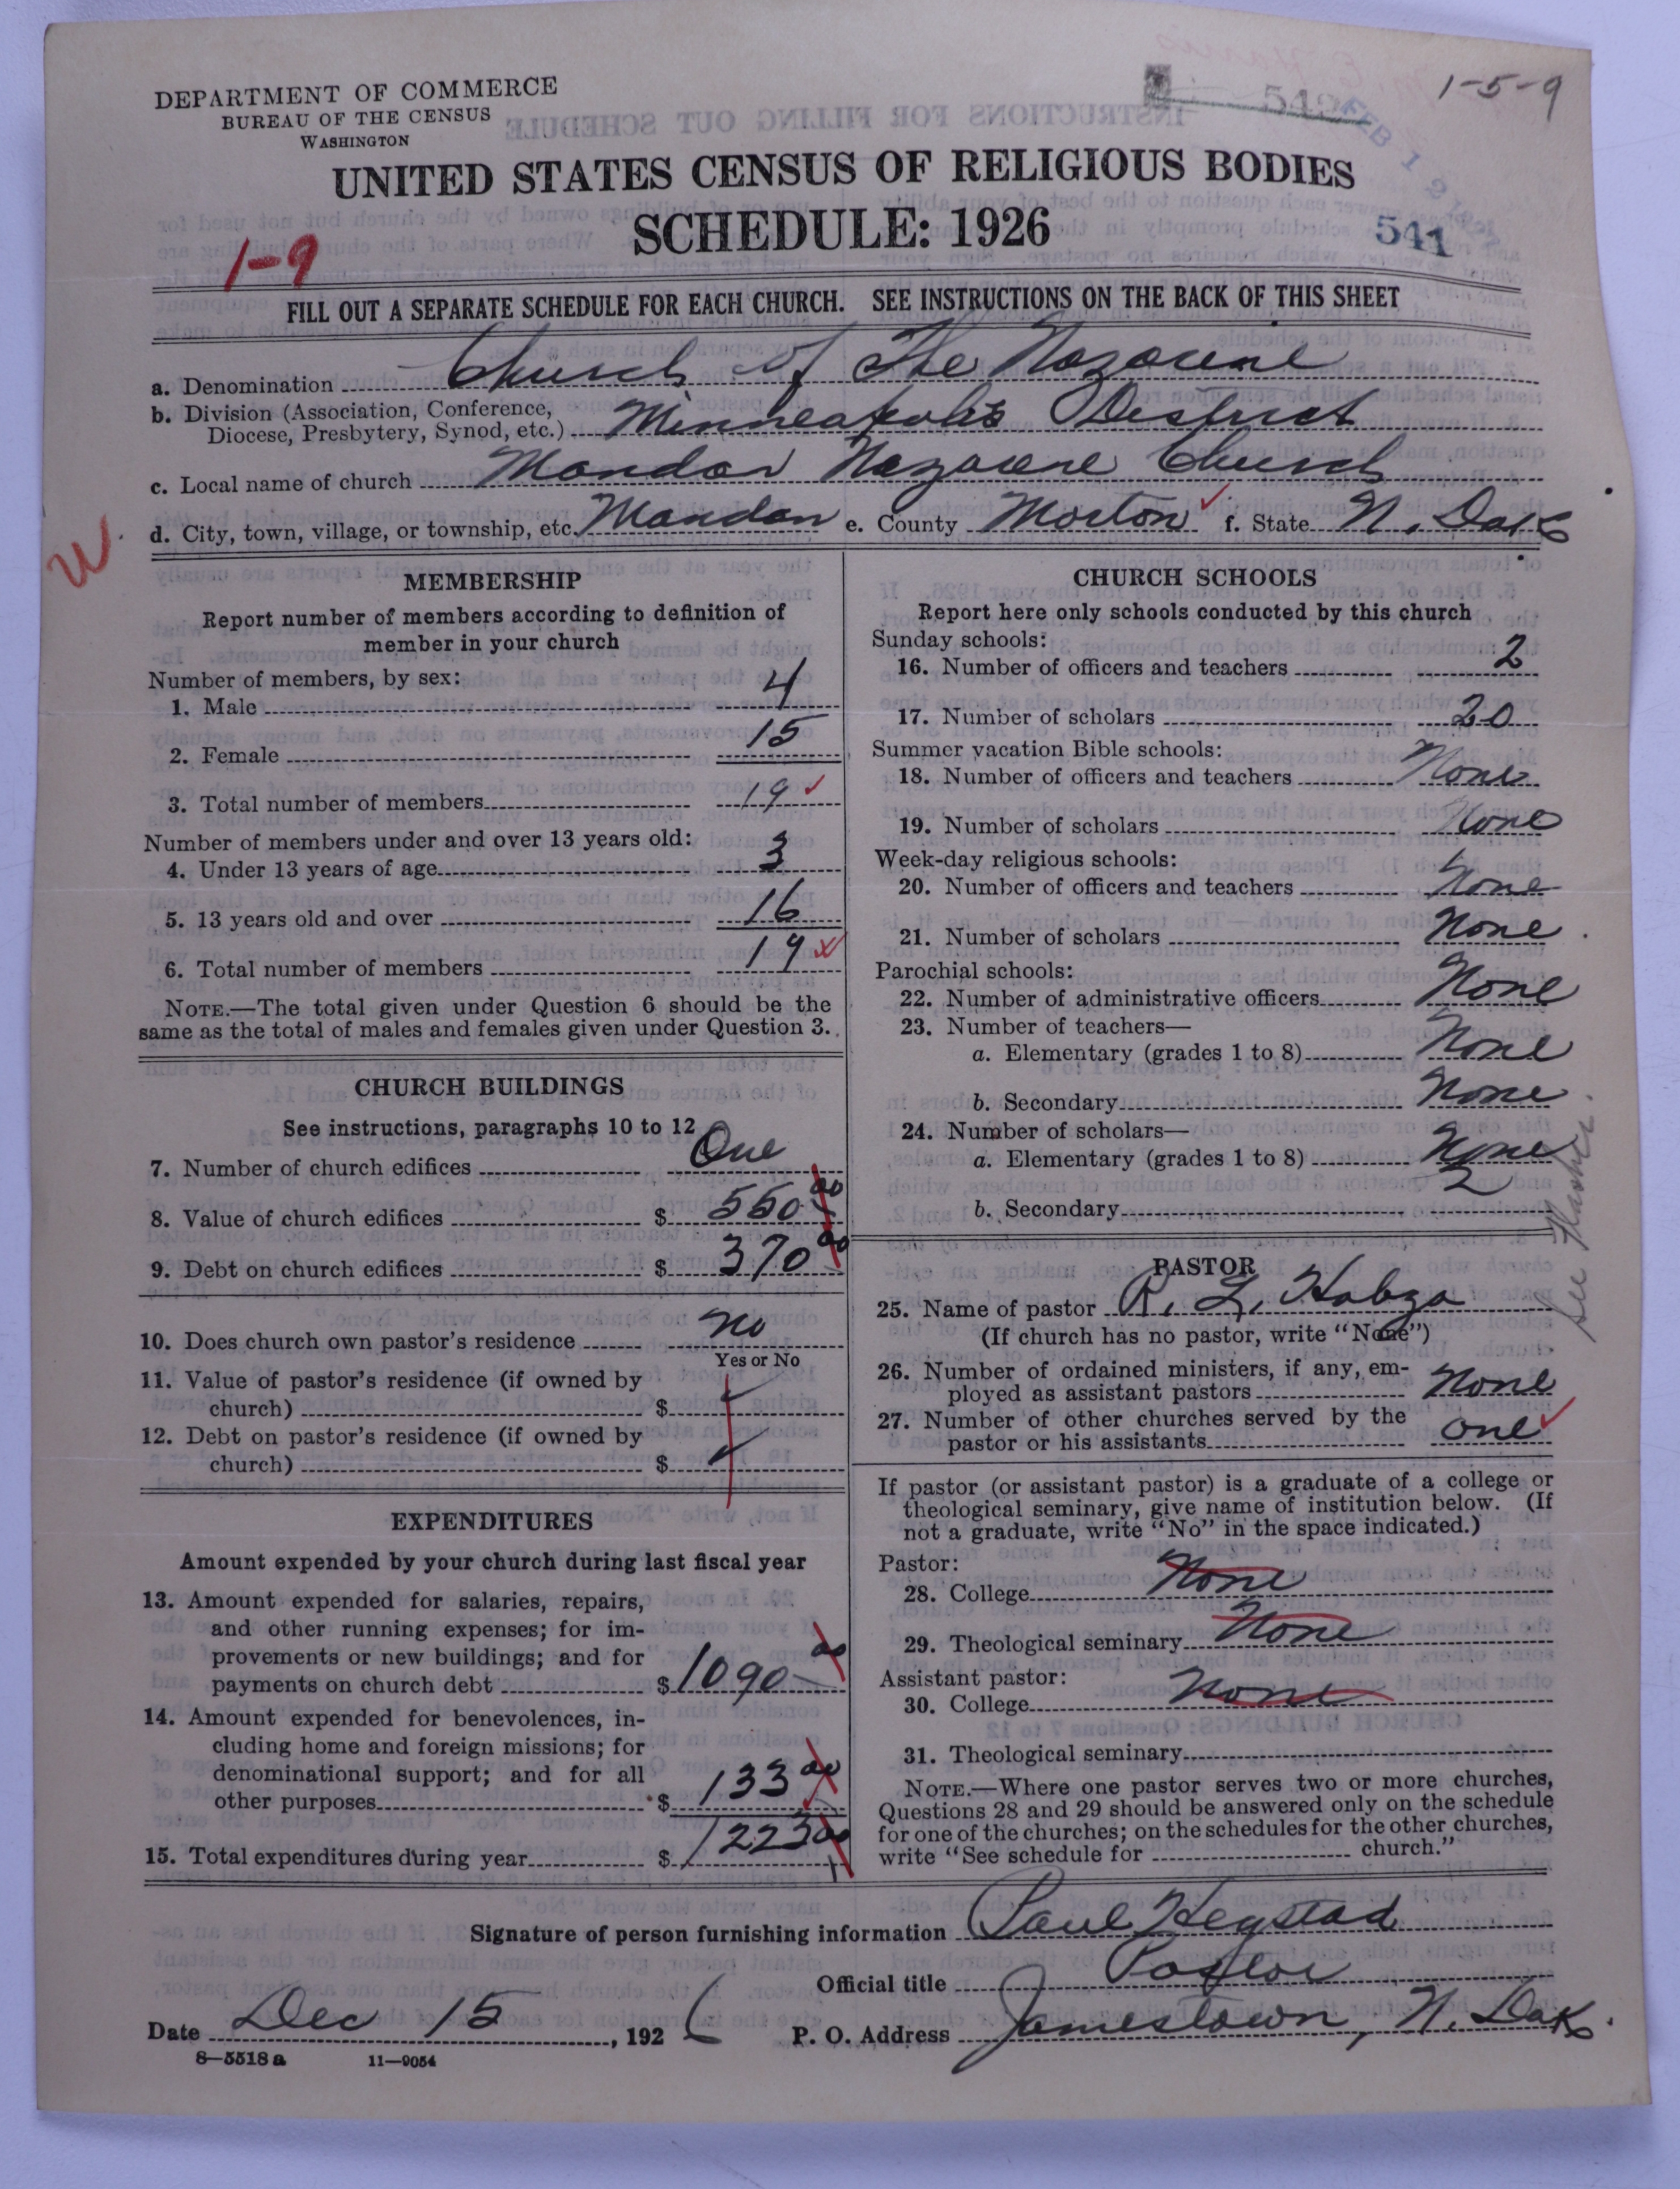 DEPARTMENT OF COMMERCE
BUREAU OF THE CENSUS
WASHINGTON
1-5-9
UNITED STATES CENSUS OF RELIGIOUS BODIES
SCHEDULE: 1926
541
1-9
FILL OUT A SEPARATE SCHEDULE FOR EACH CHURCH. SEE INSTRUCTIONS ON THE BACK OF THIS SHEET
a. Denomination Church of The Nazarene
b. Division (Association, Conference,
Diocese, Presbytery, Synod, etc.) Minneapolis District
c. Local name of church Mandan Nazarene Church
d. City, town, village, or township, etc. Mandan e. County Morton f. State N. Dak
W
MEMBERSHIP
Report number of members according to definition of
member in your church
Number of members, by sex:
1. Male 4
2. Female 15
3. Total number of members 19
Number of members under and over 13 years old:
4. Under 13 years of age 3
5. 13 years old and over 16
6. Total number of members 19
NOTE.—The total given under Question 6 should be the
same as the total of males and females given under Question 3.
CHURCH BUILDINGS
See instructions, paragraphs 10 to 12
7. Number of church edifices One
8. Value of church edifices $ 550 00
9. Debt on church edifices $ 370 00
10. Does church own pastor's residence no
Yes or No
11. Value of pastor's residence (if owned by
church) $
12. Debt on pastor's residence (if owned by
church) $
EXPENDITURES
Amount expended by your church during last fiscal year
13. Amount expended for salaries, repairs,
and other running expenses; for im-
provements or new buildings; and for
payments on church debt $ 1090 00
14. Amount expended for benevolences, in-
cluding home and foreign missions; for
denominational support; and for all
other purposes $ 133 00
15. Total expenditures during year $ 1223 00
CHURCH SCHOOLS
Report here only schools conducted by this church
Sunday schools:
16. Number of officers and teachers 2
17. Number of scholars 20
Summer vacation Bible schools:
18. Number of officers and teachers None
19. Number of scholars None
Week-day religious schools:
20. Number of officers and teachers None
21. Number of scholars None
Parochial schools:
22. Number of administrative officers None
23. Number of teachers—
a. Elementary (grades 1 to 8) None
b. Secondary None
24. Number of scholars—
a. Elementary (grades 1 to 8) None
b. Secondary 2
See
PASTOR
25. Name of pastor R. L. Habza
(If church has no pastor, write "None")
26. Number of ordained ministers, if any, em-
ployed as assistant pastors None
27. Number of other churches served by the
pastor or his assistants one
If pastor (or assistant pastor) is a graduate of a college or
theological seminary, give name of institution below. (If
not a graduate, write "No" in the space indicated.)
Pastor:
28. College None
29. Theological seminary None
Assistant pastor:
30. College None
31. Theological seminary
NOTE.—Where one pastor serves two or more churches,
Questions 28 and 29 should be answered only on the schedule
for one of the churches; on the schedules for the other churches,
write "See schedule for church."
Signature of person furnishing information Paul Hegstad
Official title Pastor
Date Dec 15, 1926 P. O. Address Jamestown, N. Dak.
8—5518a 11—9054